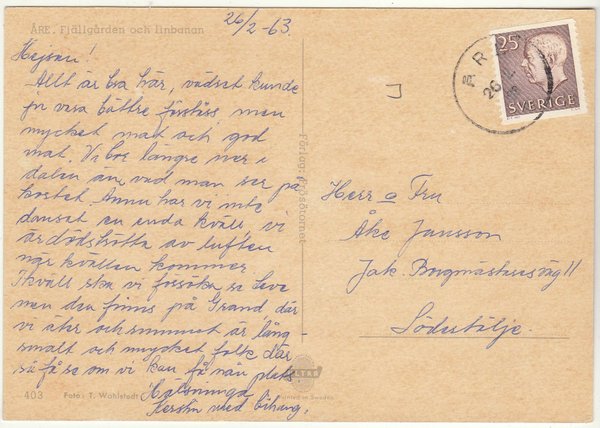 ÅRE. Fjällgården och linbanan
26/2 -63.
Hejsan!
Allt är bra här, vädret kunde
ju vara bättre förstås, men
mycket mat och god
mat. Vi bor längre ner i
dalen än vad man ser på
kortet. Ännu har vi inte
dansat en enda kväll, vi
är dödströtta av luften
när kvällen kommer
Ikväll ska vi försöka se
men den finns på Grand, där
vi äter och rummet är lång-
smalt och mycket folk där
så få se om vi kan få nån plats
Hälsningar
Kerstin med bihang.
403
Foto: T. Wahlstedt
Printed in Sweden
ULTRA
Förlag:
25
SVERIGE
ÅRE
26
Herr o Fru
Åke Jansson
Jak. Borgmästaresväg 11
Södertälje.